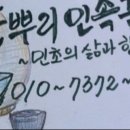 뿌리 민속
~민초의 삶과
010~7372~